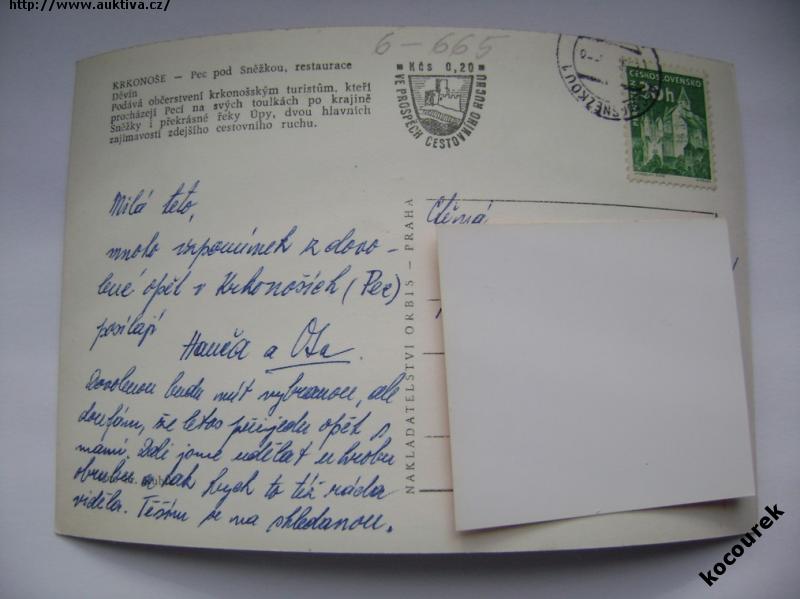 http://www.auktiva.cz/
6-665
KRKONOŠE – Pec pod Sněžkou, restaurace
Děvín
Podává občerstvení krkonošským turistům, kteří
procházejí Pecí na svých toulkách po krajině
Sněžky i překrásné řeky Úpy, dvou hlavních
zajímavostí zdejšího cestovního ruchu.
Kčs 0,20
VE PROSPĚCH CESTOVNÍHO RUCHU
SNĚŽKOU 1
ČESKOSLOVENSKO
20h
Milá teto,
mnoho vzpomínek z dovo-
lené opět v Krkonoších (Pec)
posílají
Hanča a Ota.
Dovolenou budu mít vybranou, ale
doufám, že letos přijedu opět s
mámi. Dali jsme udělat u hrobu
obrubu a tak bych to též ráda
viděla. Těším se na shledanou.
NAKLADATELSTVÍ ORBIS – PRAHA
Ctěná
kocourek